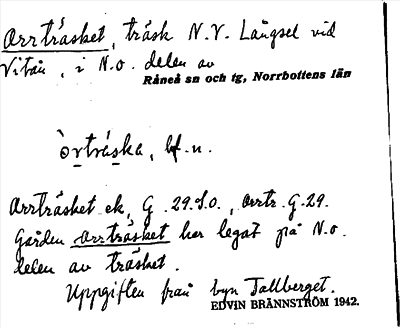 Arrträsket, träsk N.V. Långsel vid
Vitån, i N.O. delen av
Råneå sn och tg, Norrbottens län
òrträska, bf. n.
Arrträsket ek, G. 29.S.O., Arrtr. G.29.
Gården Arrträsket har legat på N.O.
delen av träsket.
Uppgiften från byn Tallberget.
EDVIN BRÄNNSTRÖM 1942.